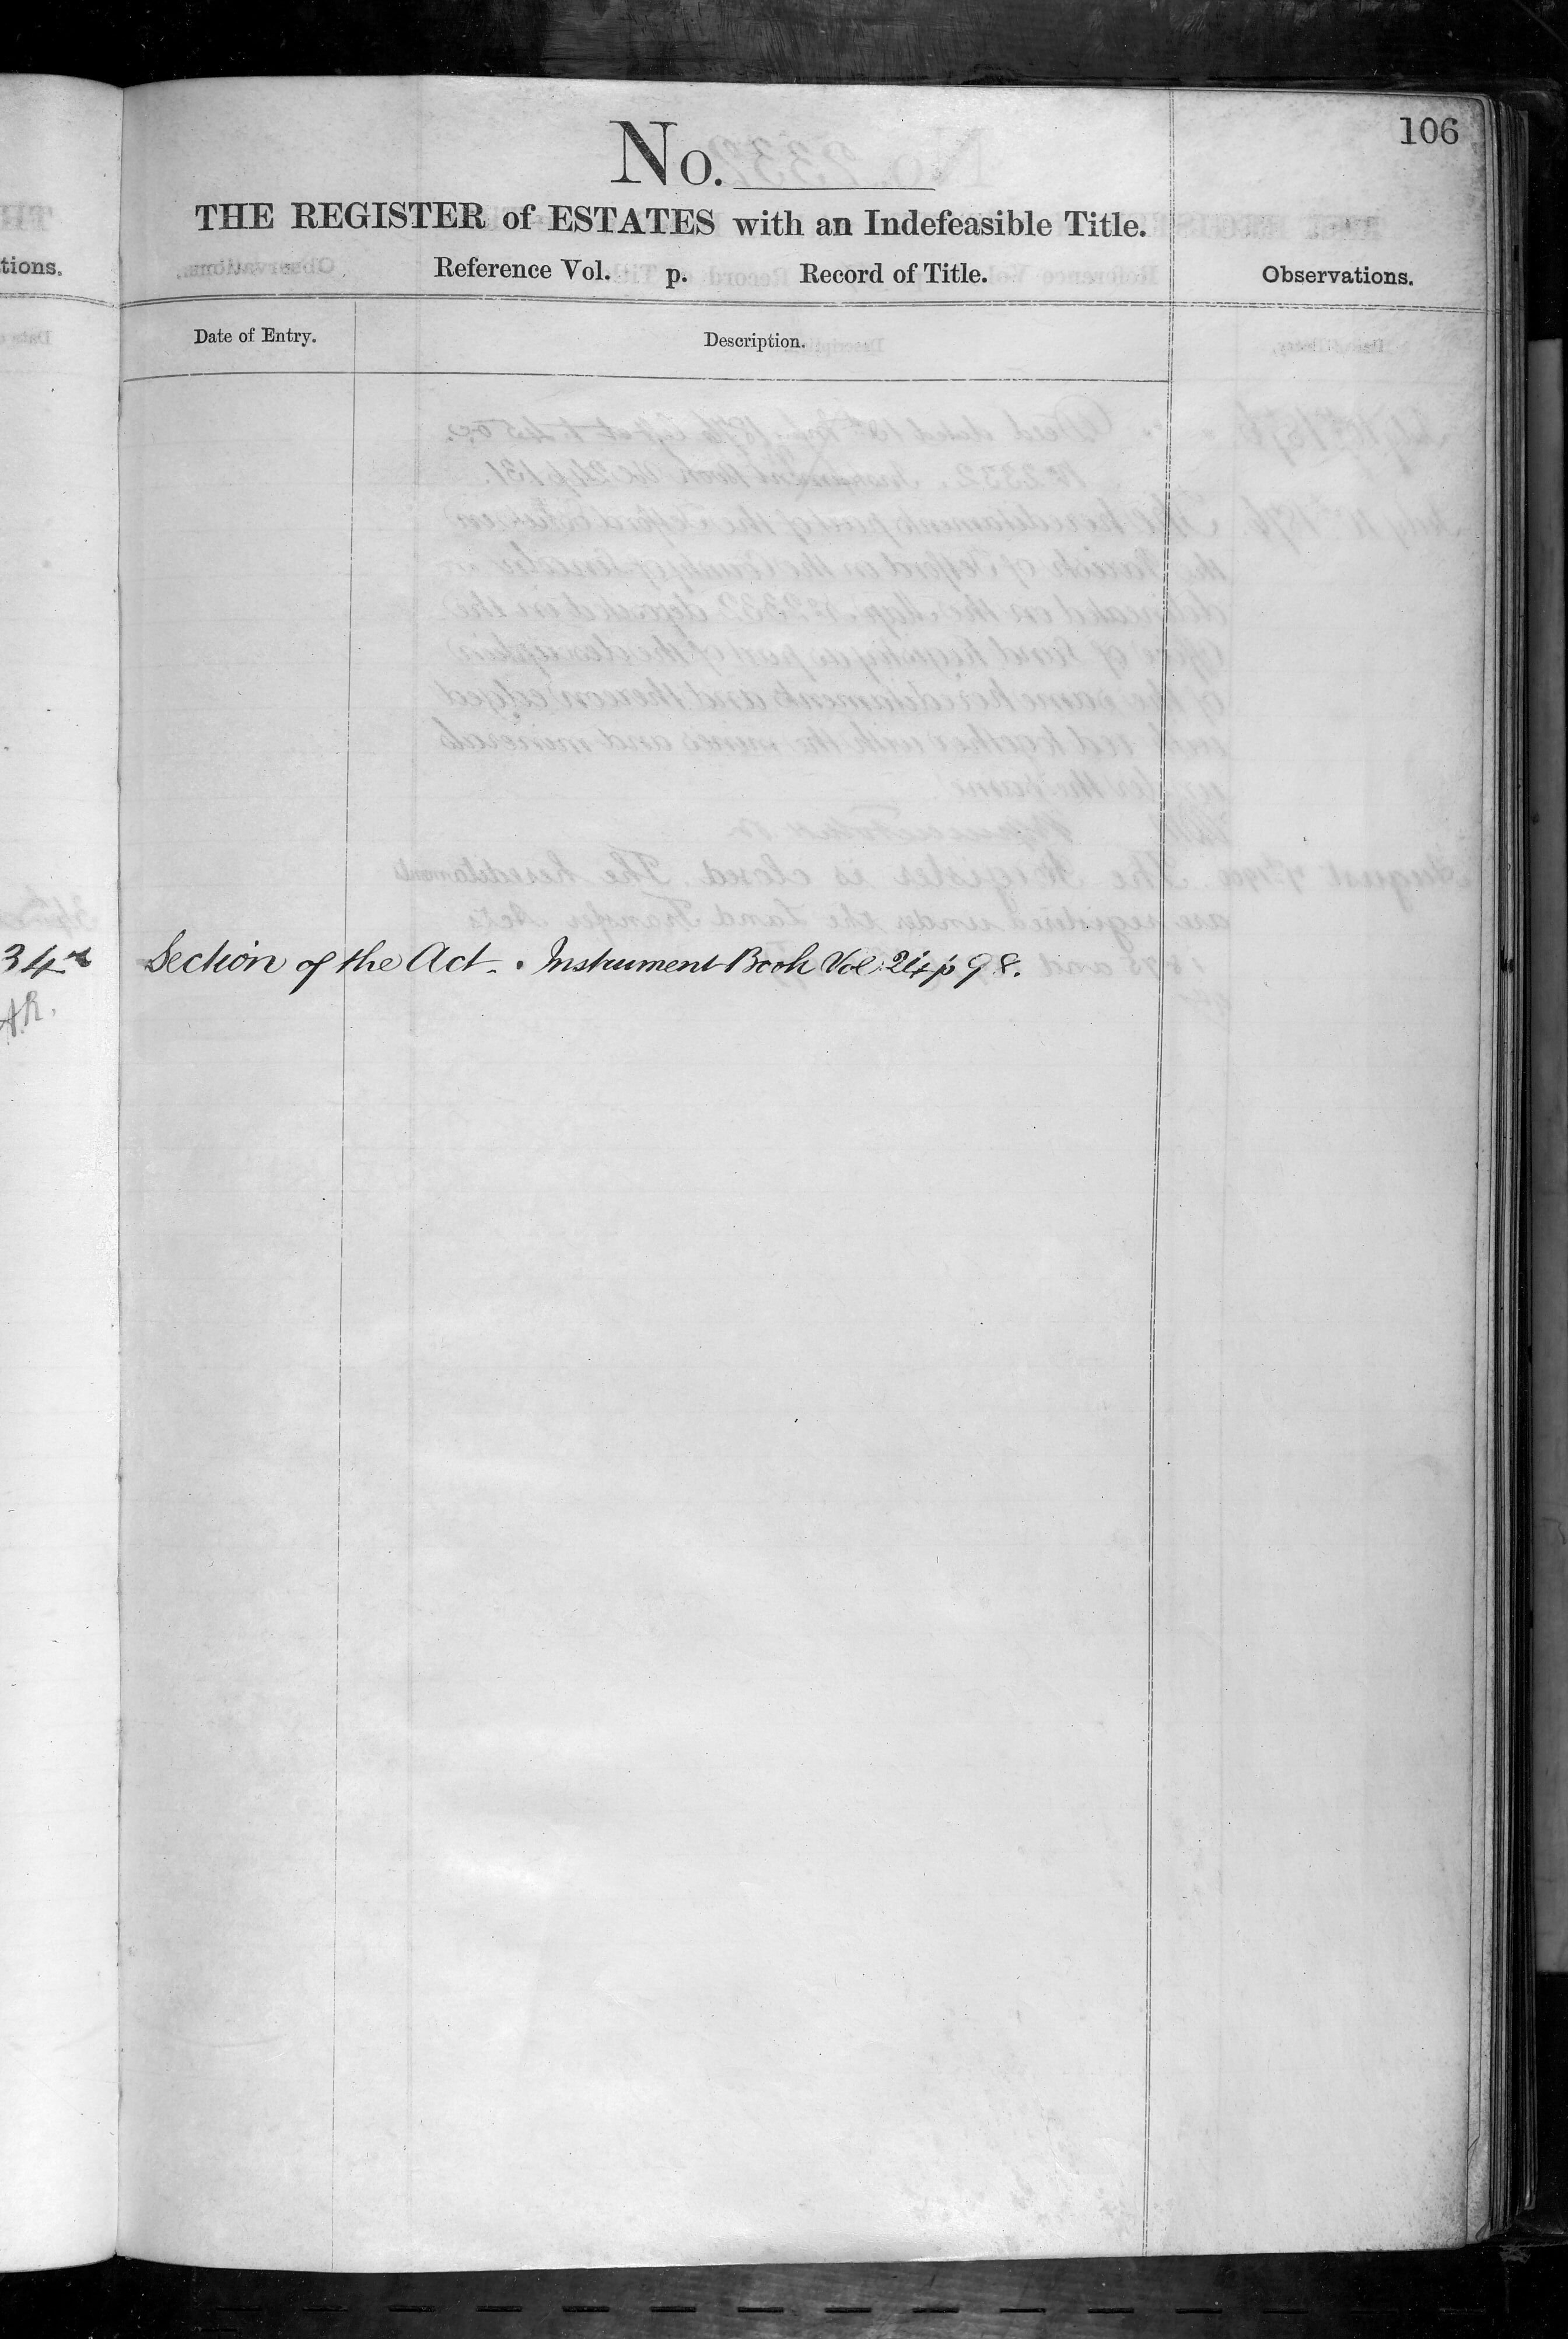 tions.
34th
A.R.
106
No.
THE REGISTER of ESTATES with an Indefeasible Title.
Reference Vol. p. Record of Title.
Observations.
Date of Entry.
Description.
Section of the Act. Instrument Book Vol: 24 p 98.